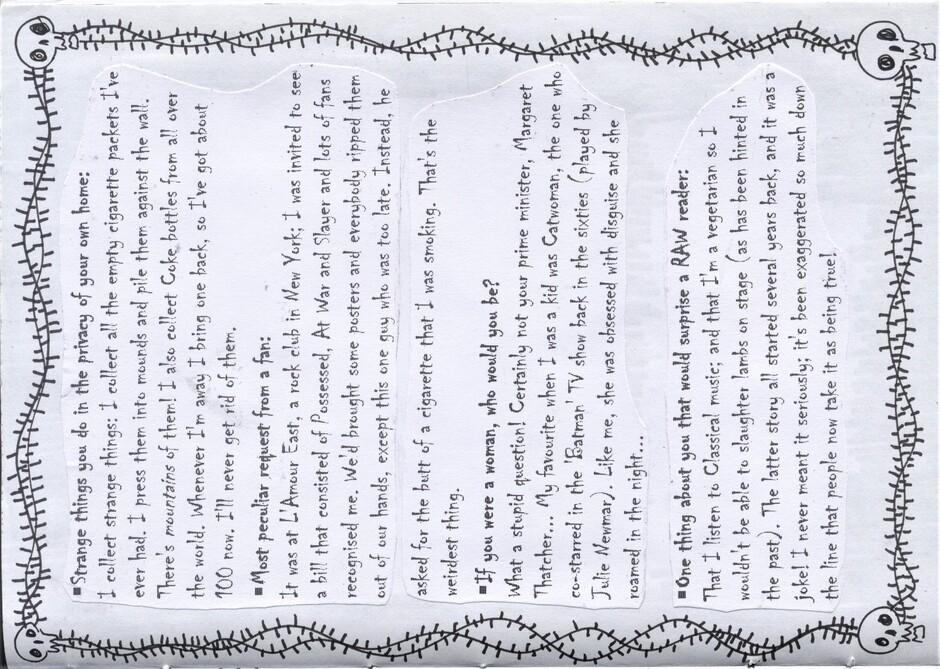 ■Strange things you do in the privacy of your own home:
I collect strange things; I collect all the empty cigarette packets I've
ever had, I press them into mounds and pile them against the wall.
There's mountains of them! I also collect Coke bottles from all over
the world. Whenever I'm away I bring one back, so I've got about
100 now. I'll never get rid of them.
■Most peculiar request from a fan:
It was at L'Amour East, a rock club in New York; I was invited to see
a bill that consisted of Possessed, At War and Slayer and lots of fans
recognised me. We'd brought some posters and everybody ripped them
out of our hands, except this one guy who was too late. Instead, he
asked for the butt of a cigarette that I was smoking. That's the
weirdest thing.
■If you were a woman, who would you be?
What a stupid question! Certainly not your prime minister, Margaret
Thatcher... My favourite when I was a kid was Catwoman, the one who
co-starred in the 'Batman' TV show back in the sixties (played by
Julie Newmar). Like me, she was obsessed with disguise and she
roamed in the night...
■One thing about you that would surprise a RAW reader:
That I listen to Classical music; and that I'm a vegetarian so I
wouldn't be able to slaughter lambs on stage (as has been hinted in
the past). The latter story all started several years back, and it was a
joke! I never meant it seriously; it's been exaggerated so much down
the line that people now take it as being true!